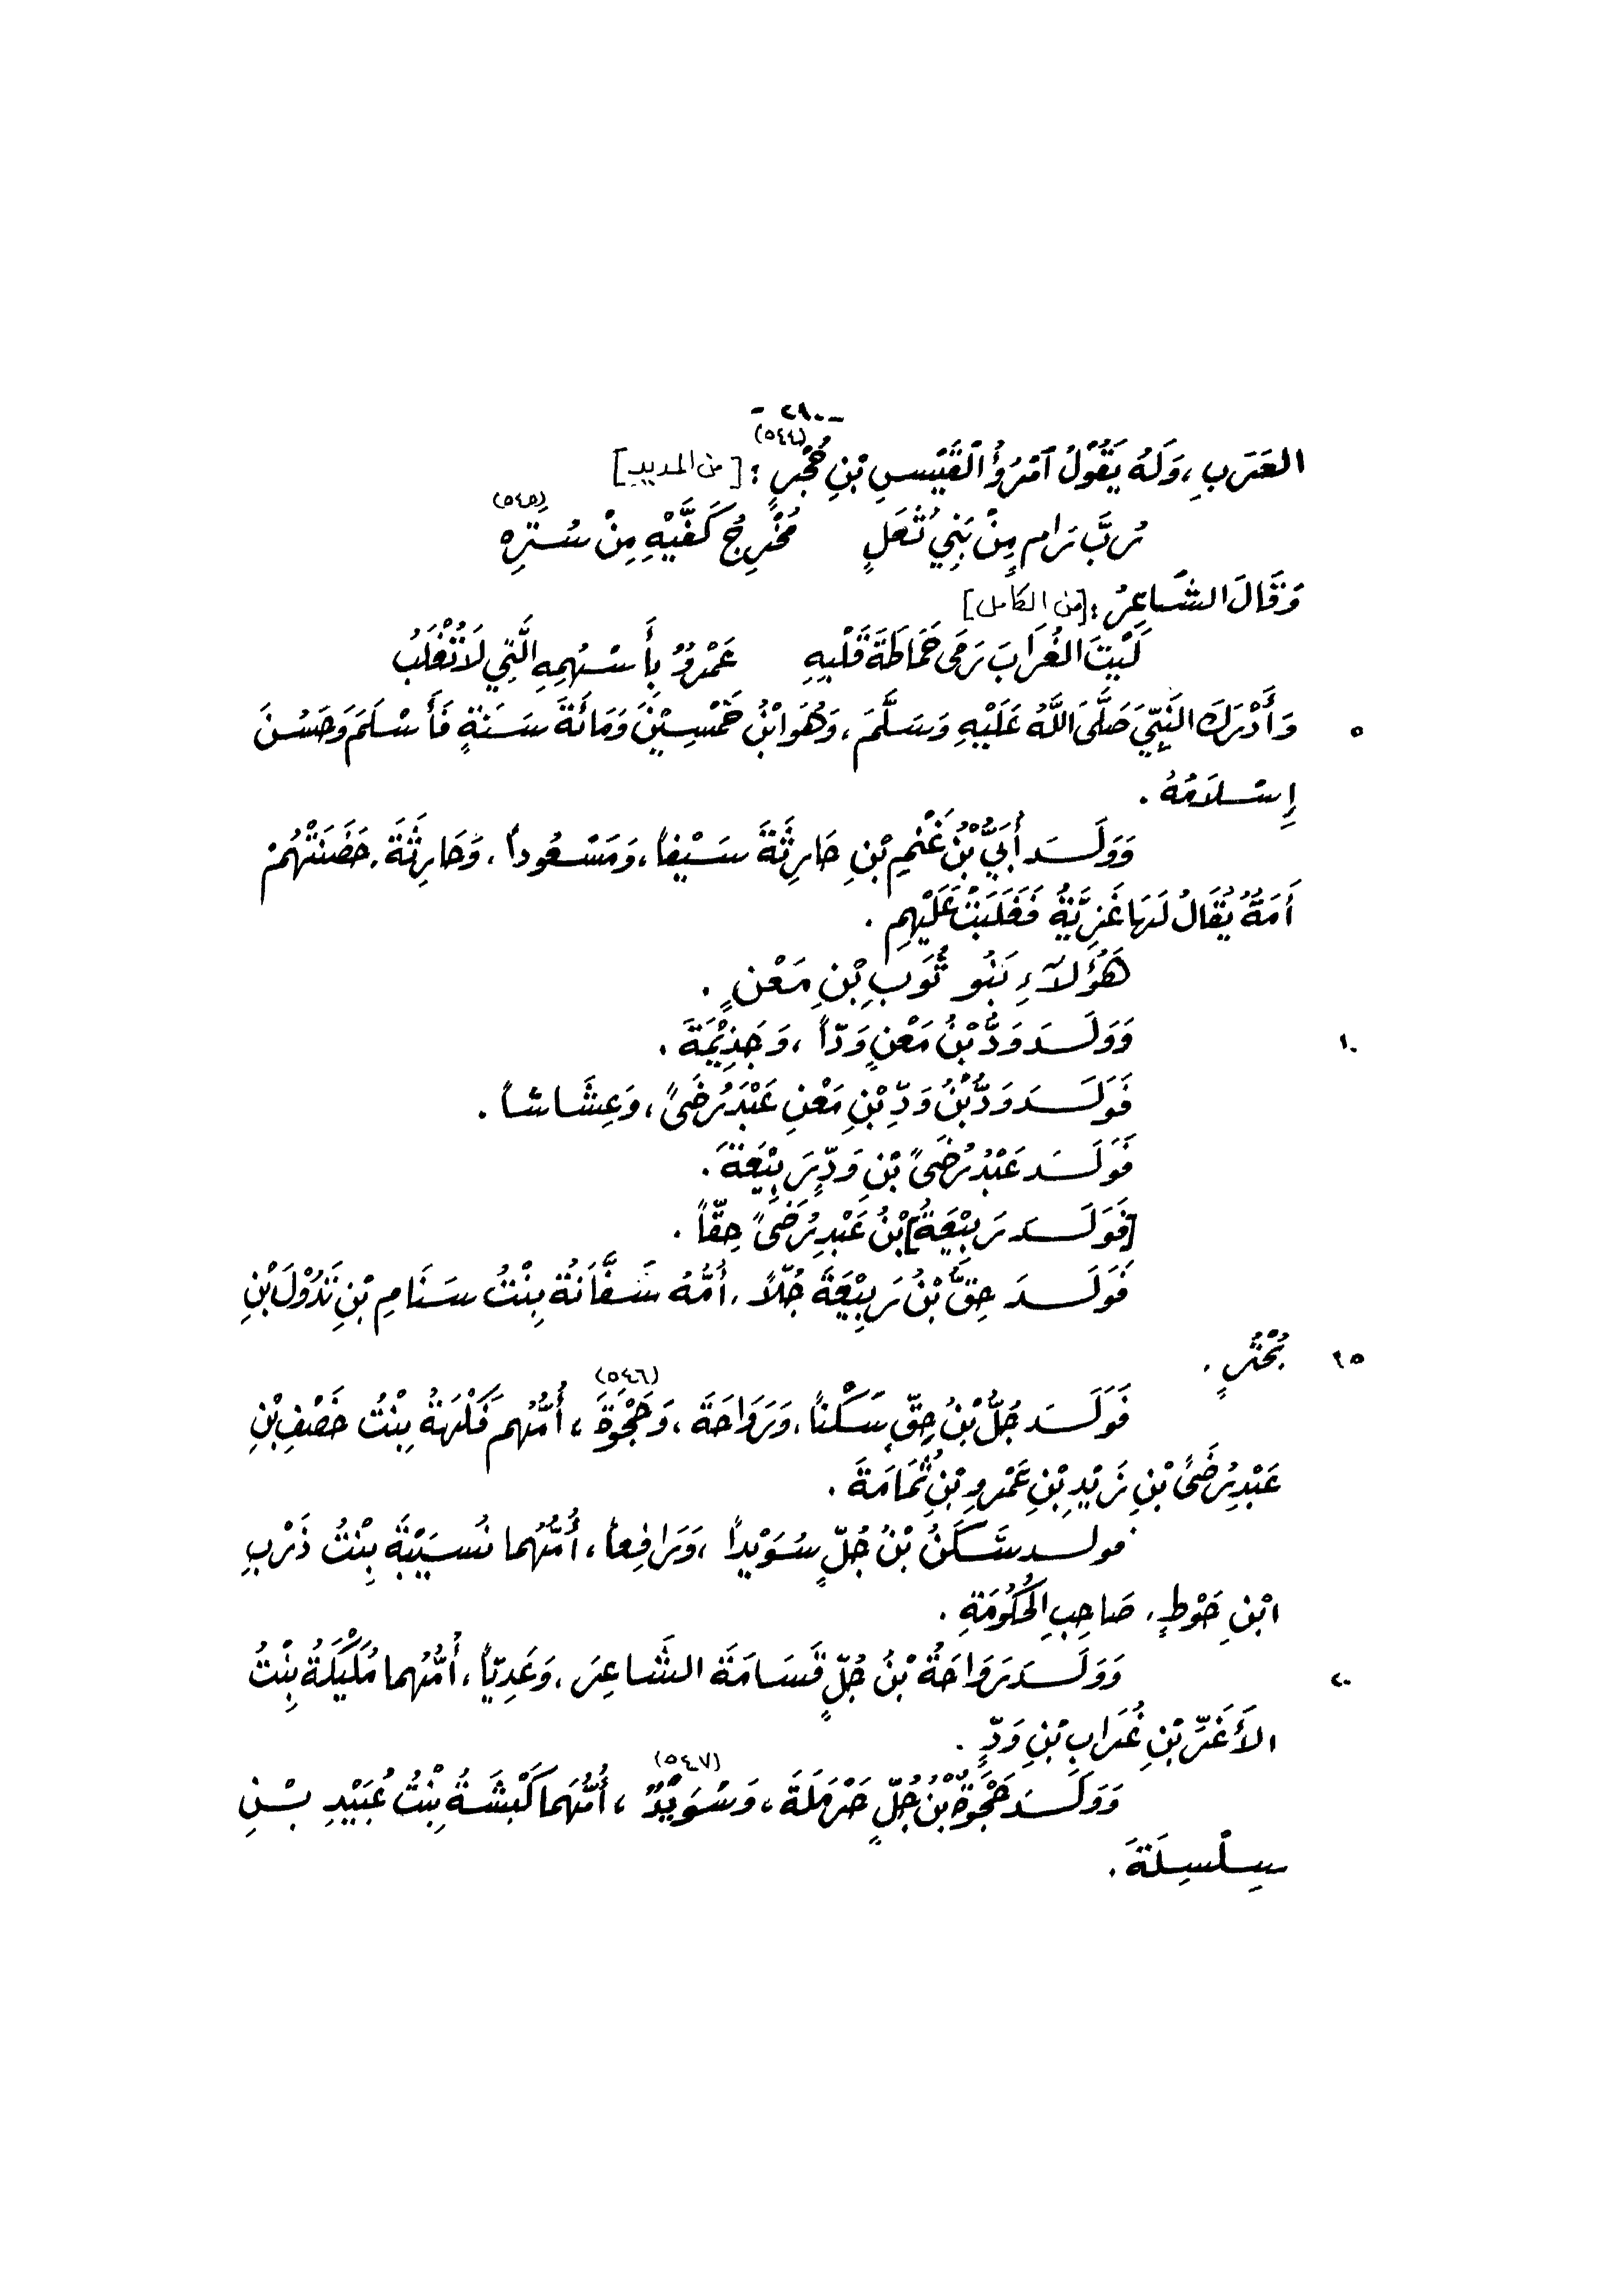 - ٢٩٠ -
العَرَبِ، وَلَهُ يَقُوْلُ آمْرُؤُ الْقَيْسِ بْنِ حُجْرٍ (٥٤٤): [من المديد]
رُبَّ رَامٍ مِنْ بَنِي ثُعَلٍ مُخْرِجُ كَفَّيْهِ مِنْ سُتَرِهْ (٥٤٥)
وَقَالَ الشَّاعِرُ: [من الكامل]
لَيْتَ الغُرَابَ رَمَى حَمَاطَةَ قَلْبِهِ عَمْرٌو بِأَسْهُمِهِ الَّتِي لَا تُغْلَبُ
٥ وَأَدْرَكَ النَّبِيَّ صَلَّى اللَّهُ عَلَيْهِ وَسَلَّمَ، وَهُوَ ابْنُ خَمْسِيْنَ وَمَائَةَ سَنَةٍ فَأَسْلَمَ وَحَسُنَ
إِسْلَامُهُ .
وَوَلَدَ أُبَيُّ بْنُ غَنْمِ بْنِ حَارِثَةَ سَيْفاً، وَمَسْعُوداً، وَحَارِثَةَ، حَضَنَتْهُمْ
أَمَةٌ يُقَالُ لَهَا غَزِيَّةُ فَغَلَبَتْ عَلَيْهِمِ .
هَؤُلَآءِ بَنُو ثُوَبِ بْنِ مَعْنٍ .
١٠ وَوَلَدَ وَدُّ بْنُ مَعْنٍ وَدّاً، وَجَذِيْمَةَ .
فَوَلَدَ وَدُّ بْنُ وَدِّ بْنِ مَعْنِ عَبْدَ رُضَىً، وَعِشَاشاً .
فَوَلَدَ عَبْدُ رُضَىً بْنِ وَدٍّ رَبِيْعَةَ .
[فَوَلَدَ رَبِيْعَةُ] بْنُ عَبْدِ رُضَىً حِقّاً .
فَوَلَدَ حِقُّ بْنُ رَبِيْعَةَ جُلّاً، أُمُّهُ سَفَّانَةُ بِنْتُ سَنَامِ بْنِ تَدُوْلَ بْنِ
١٥ بُحْتُرٍ .
فَوَلَدَ جُلُّ بْنُ حِقٍّ سَكْناً، وَرَوَاحَةَ، وَحَجْوَةَ (٥٤٦)، أُمُّهُم فَكْهَةُ بِنْتُ خَصْفِ بْنِ
عَبْدِ رُضَىً بْنِ زَيْدِ بْنِ عَمْرِو بْنِ ثُمَامَةَ .
فولد سَّكَنُ بْنُ جُلٍّ سُوَيْداً، وَرَافِعاً، أُمُّهُما نُسَيْبَةُ بِنْتُ ذَرْبِ
ابْنِ حَوْطٍ، صَاحِبِ الحُكُومَةِ .
٢٠ وَوَلَدَ رَوَاحَةُ بْنُ جُلٍّ قَسَامَةَ الشَّاعِرَ، وَعَدِيّاً، أُمُّهُما مُلَيْكَةُ بِنْتُ
الأَغَرِّ بْنِ غُرَابِ بْنِ وَدٍّ .
وَوَلَدَ حَجْوَةُ بْنُ جُلٍّ حَرْمَلَةَ، وَسُوَيْدٌ (٥٤٧)، أُمُّهَما كَبْشَةُ بِنْتُ عُبَيْدِ بْنِ
سِلْسِلَةَ .